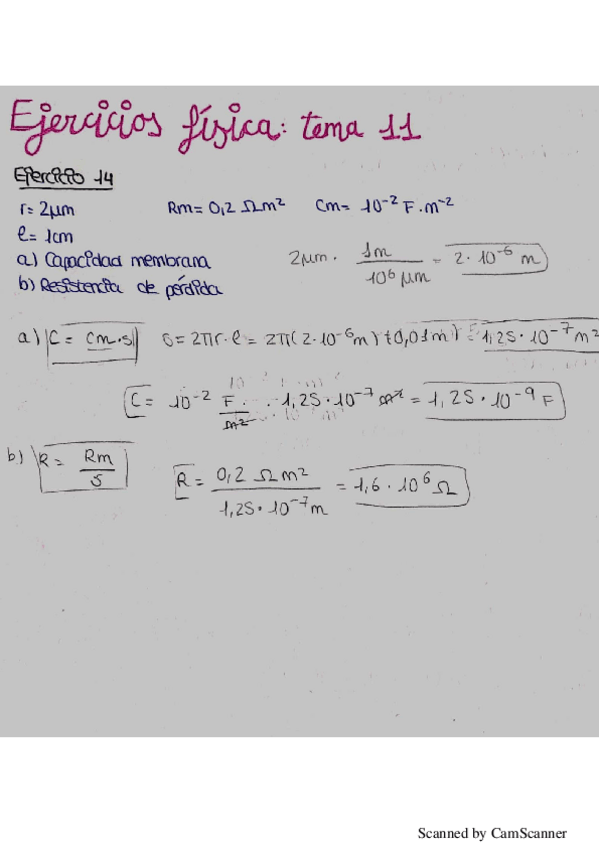 Ejercicios física: tema 11
Ejercicio 14
r= 2μm Rm= 0,2 Ωm² Cm= 10⁻² F·m⁻²
l= 1cm
a) Capacidad membrana 2μm · 1m / 10⁶ μm = 2·10⁻⁶ m
b) Resistencia de pérdida
a) C= Cm·s S= 2πr·l = 2π(2·10⁻⁶m)(0,01m) = 1,25·10⁻⁷ m²
C= 10⁻² F/m² · 1,25·10⁻⁷ m² = 1,25·10⁻⁹ F
b) R= Rm/S R= 0,2 Ωm² / 1,25·10⁻⁷m = 1,6·10⁶ Ω
Scanned by CamScanner